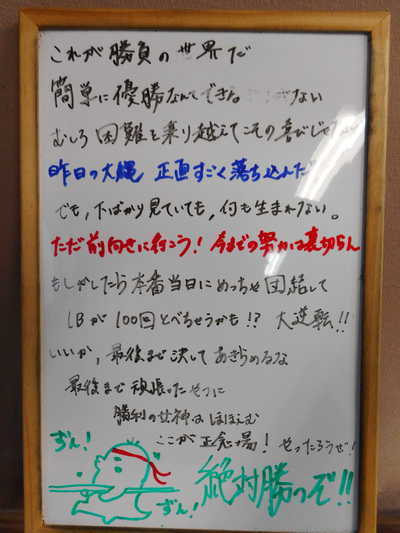 これが勝負の世界だ
簡単に優勝なんてできる がない
むしろ困難を乗り越えてこその喜びじゃ
昨日の大縄 正直すごく落ち込んだ
でも,下ばかり見ていても,何も生まれない。
ただ前向きに行こう!今までの努力は裏切らん
もしかしたら本番当日にめっちゃ団結して
1Bが100回とべちゃうかも!? 大逆転!!
いいか,最後まで決してあきらめるな
最後まで頑張ったやつに
勝利の女神はほほえむ
ここが正念場! やったろうぜ!
ずん!
ずん!
絶対勝つぞ!!